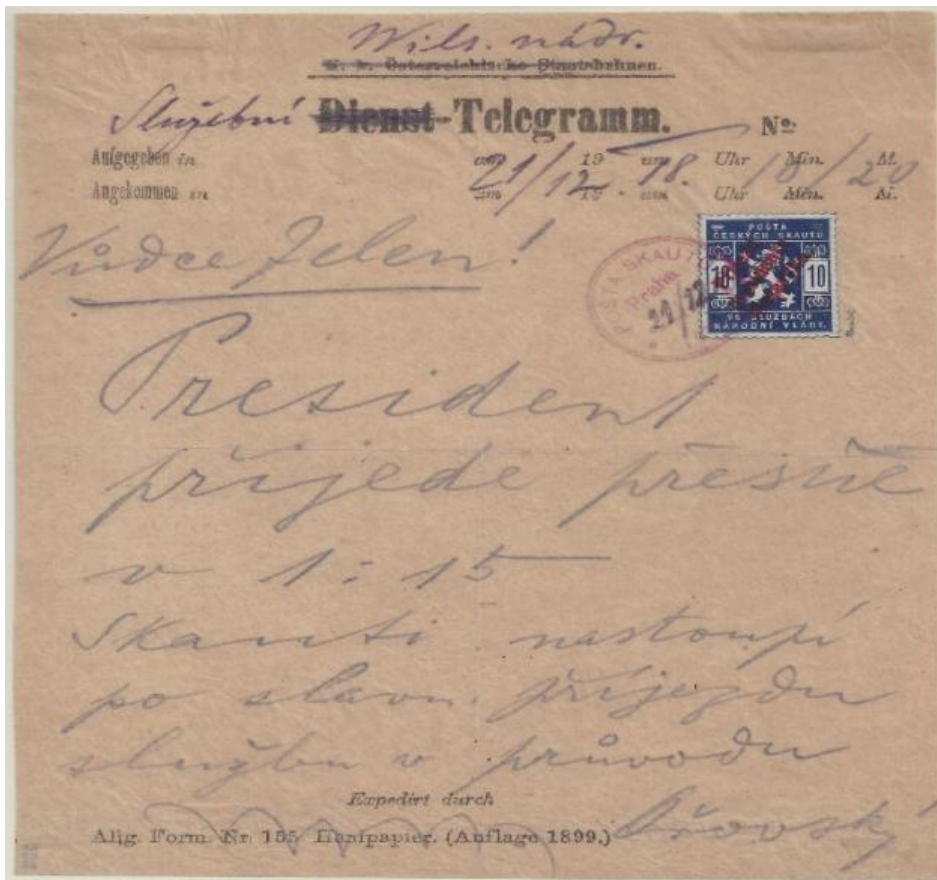 Wils. nádr.
K. k. Österreichische Staatsbahnen.
Služební Dienst-Telegramm. No:
Aufgegeben in am 19 um Uhr Min. M.
21/12. 18. 10/20
Angekommen in am 19 um Uhr Min. M.
Vůdce Jelen!
POŠTA
ČESKÝCH SKAUTŮ
10 10
VE SLUŽBÁCH
NÁRODNÍ VLÁDY.
POŠTA SKAUTŮ
Praha
21/12
President
přijede přesně
v 1:15
Skauti nastoupí
po slavn. příjezdu
službu v průvodu
Expedirt durch
Allg. Form. Nr. 155 Hanfpapier. (Auflage 1899.)